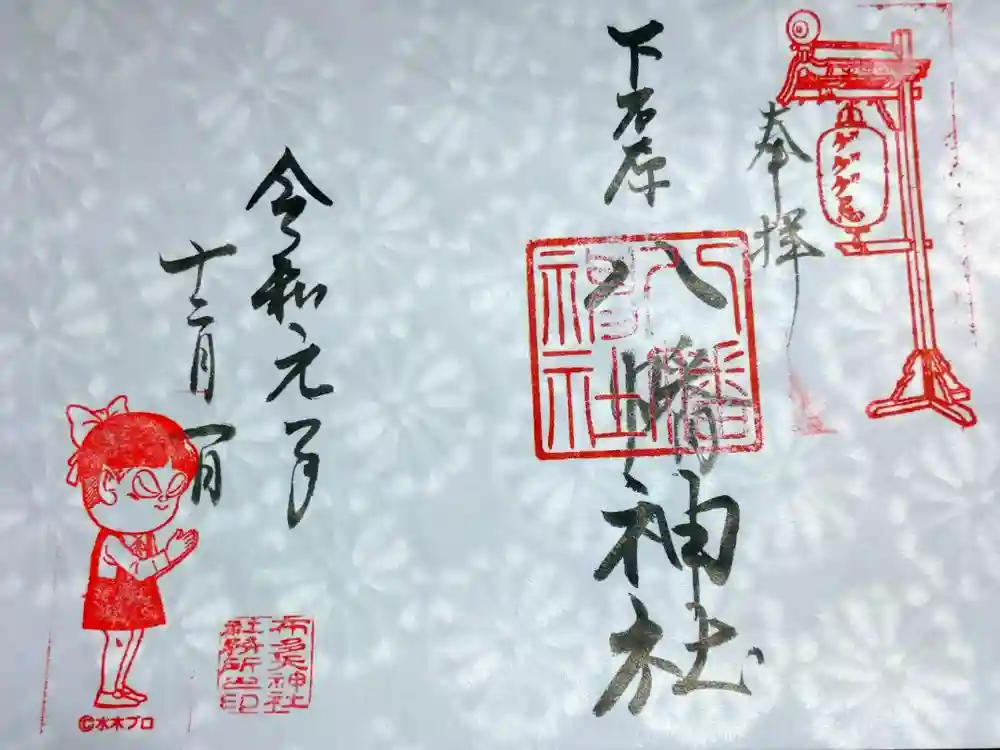 奉拝
下石原
八幡神社
八幡
神社
ゲゲゲ忌
令和元年
十二月一日
布多天神社
社務所之印
©水木プロ